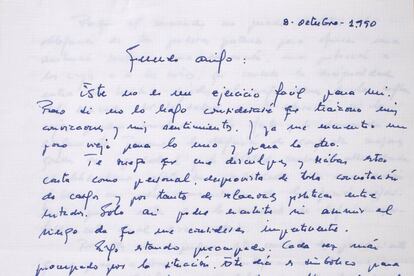 8-octubre-1.990
Querido amigo:
Este no es un ejercicio fácil para mí.
Pero si no lo hago consideraré que traiciono mis
convicciones y mis sentimientos. Y ya me encuentro un
poco viejo para lo uno y para lo otro.
Te ruego que me disculpes y recibas esta
carta como personal, desprovista de toda connotación
de cargos y por tanto de relaciones políticas entre
nosotros. Solo así podré escribirte sin asumir el
riesgo de que me consideres impertinente.
Sigo estando preocupado. Cada vez más
preocupado por la situación. Este día es simbólico para